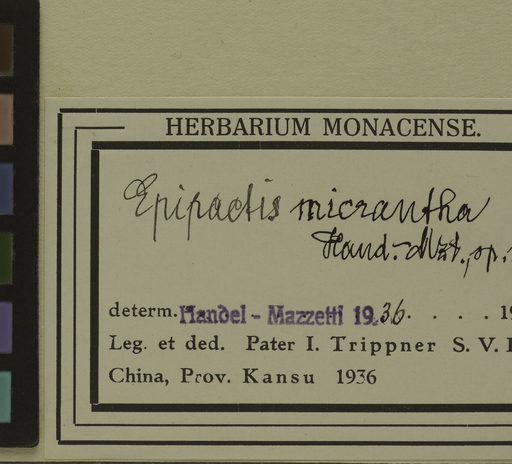 HERBARIUM MONACENSE.
Epipactis micrantha
Hand.-Mzt., sp.
determ. Handel - Mazzetti 1936. . . . . 19
Leg. et ded. Pater I. Trippner S. V.
China, Prov. Kansu 1936